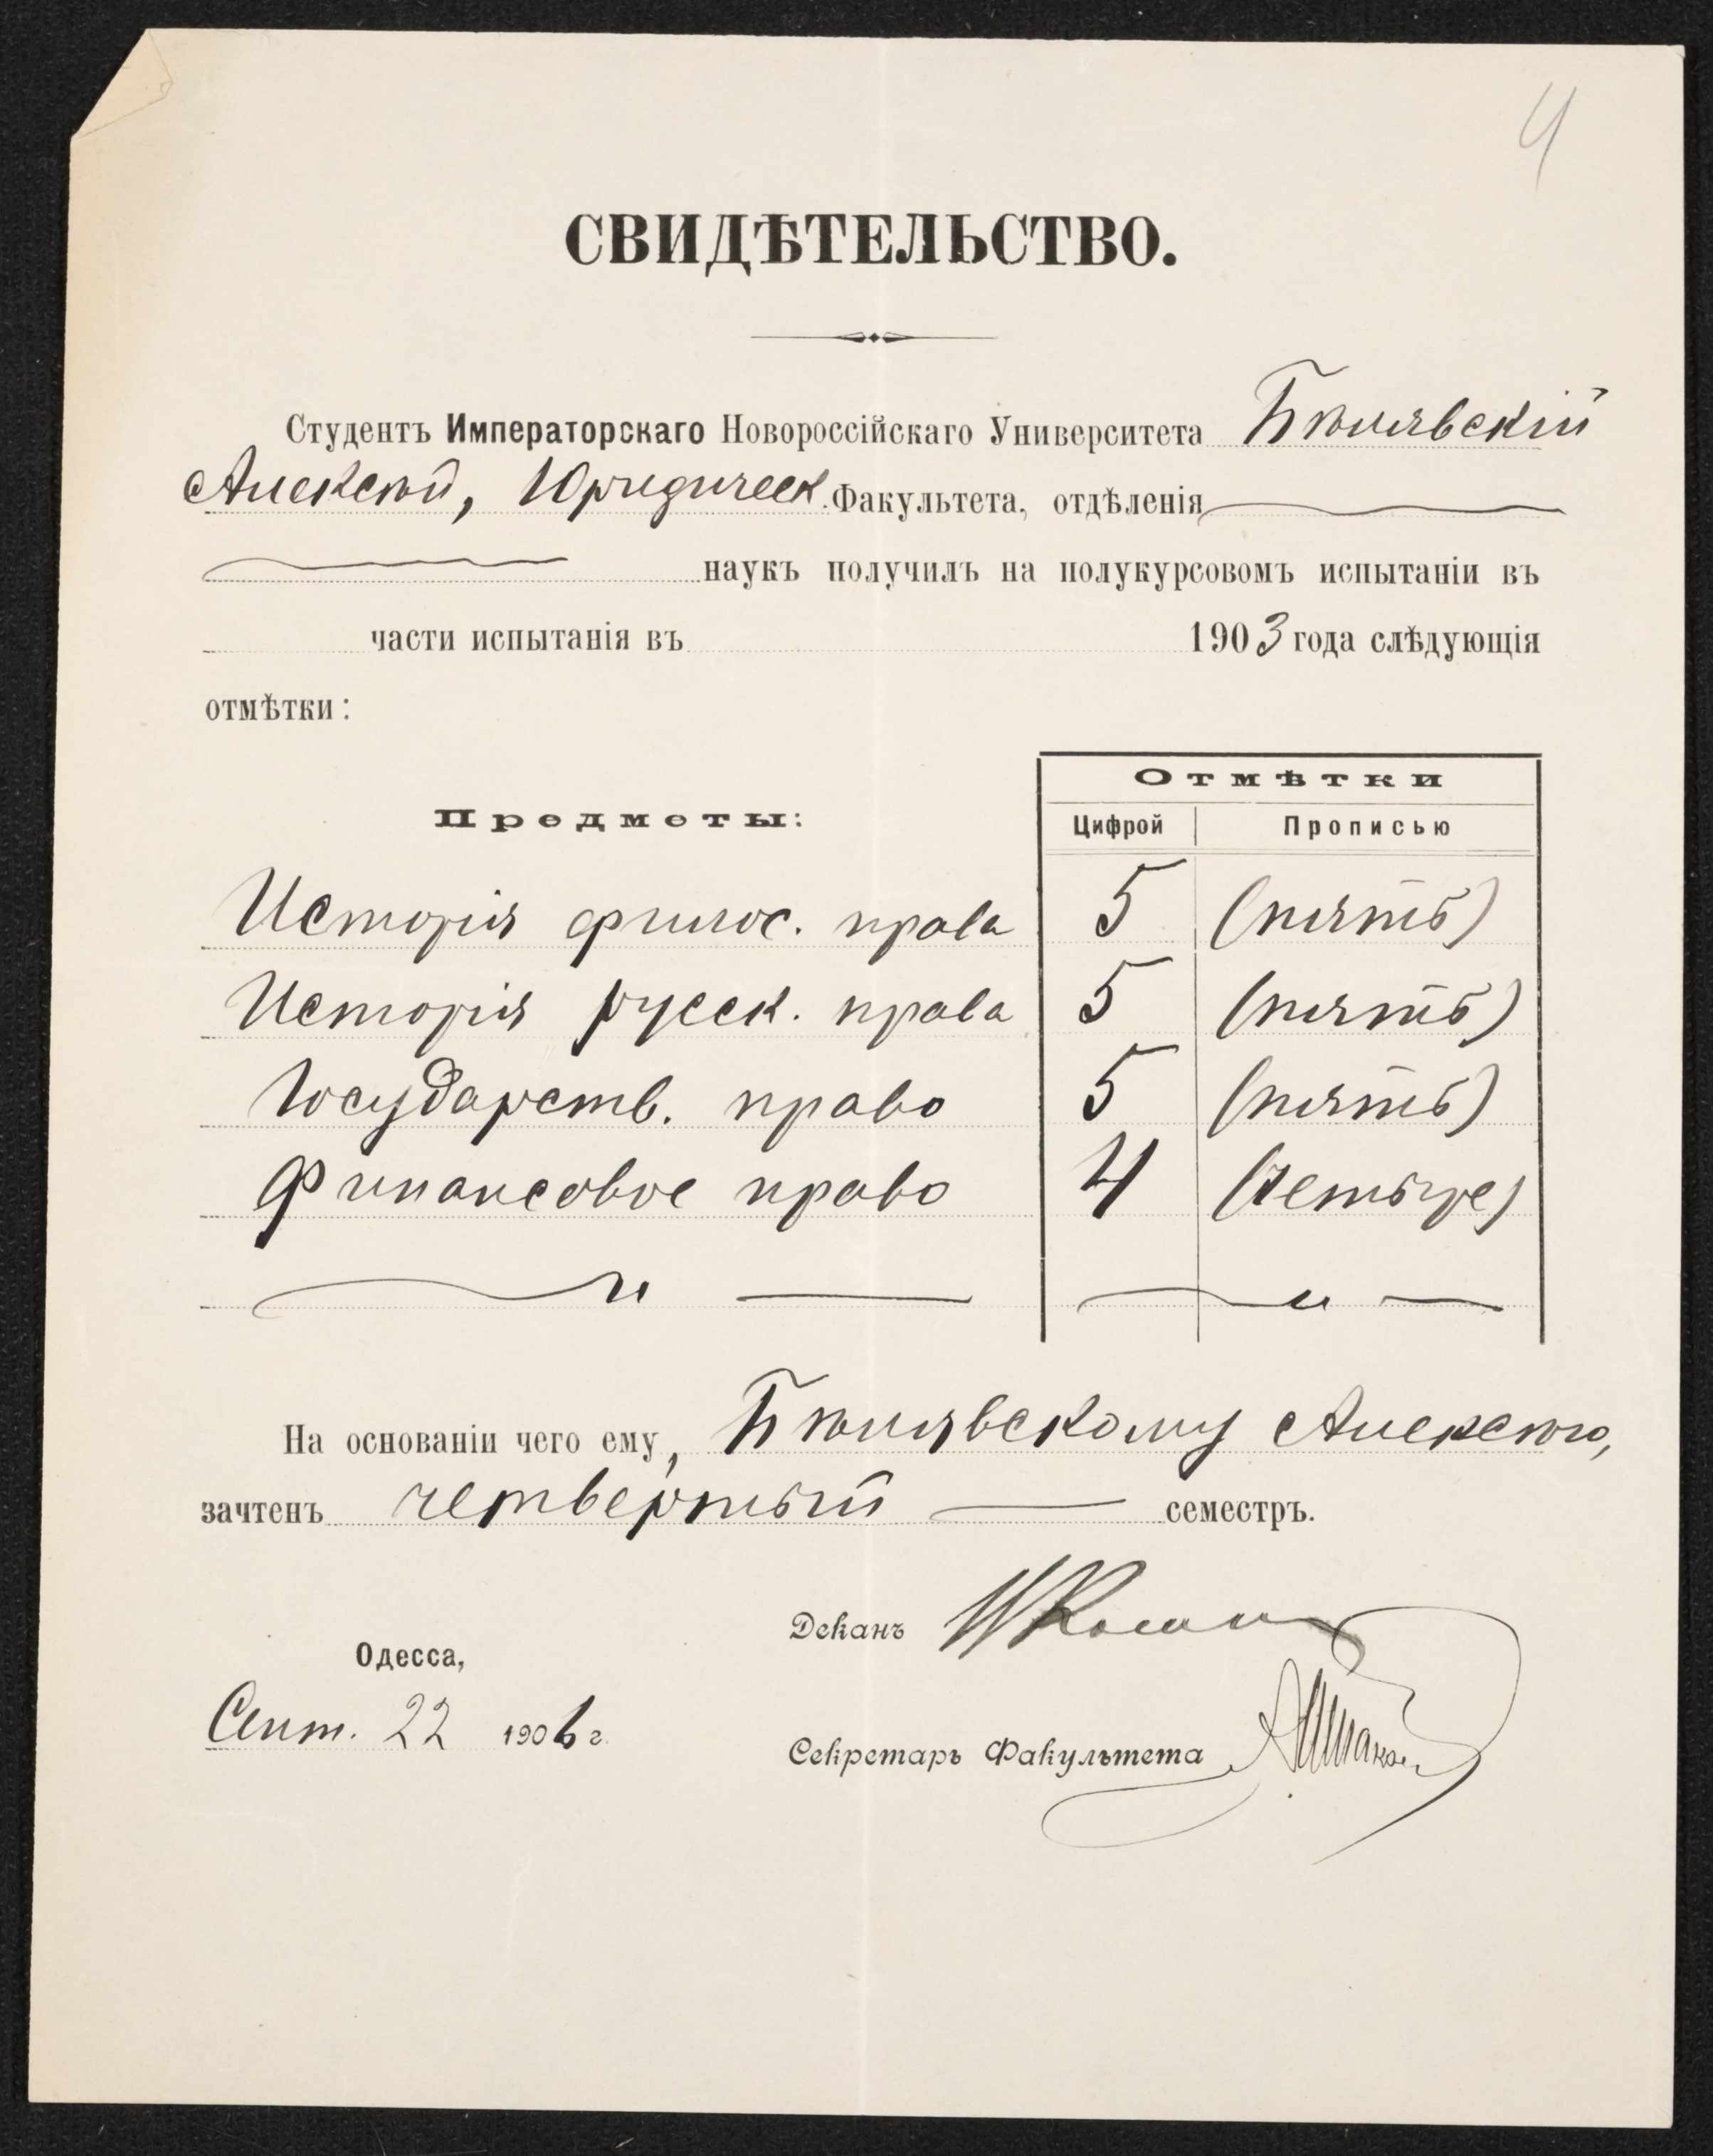 4
СВИДѢТЕЛЬСТВО.
Студентъ Императорскаго Новороссійскаго Университета Бѣлявскій
Алексѣй, Юридическ. Факультета, отдѣленія
наукъ получилъ на полукурсовомъ испытаніи въ
части испытанія въ 1903 года слѣдующія
отмѣтки:
Предметы: Отмѣтки
Цифрой Прописью
Исторія филос. права 5 (пять)
Исторія русск. права 5 (пять)
Государств. право 5 (пять)
Финансовое право 4 (четыре)
На основаніи чего ему, Бѣлявскому Алексѣю,
зачтенъ четвертый семестръ.
Деканъ
Одесса,
Сент. 22 1906 г.
Секретарь Факультета